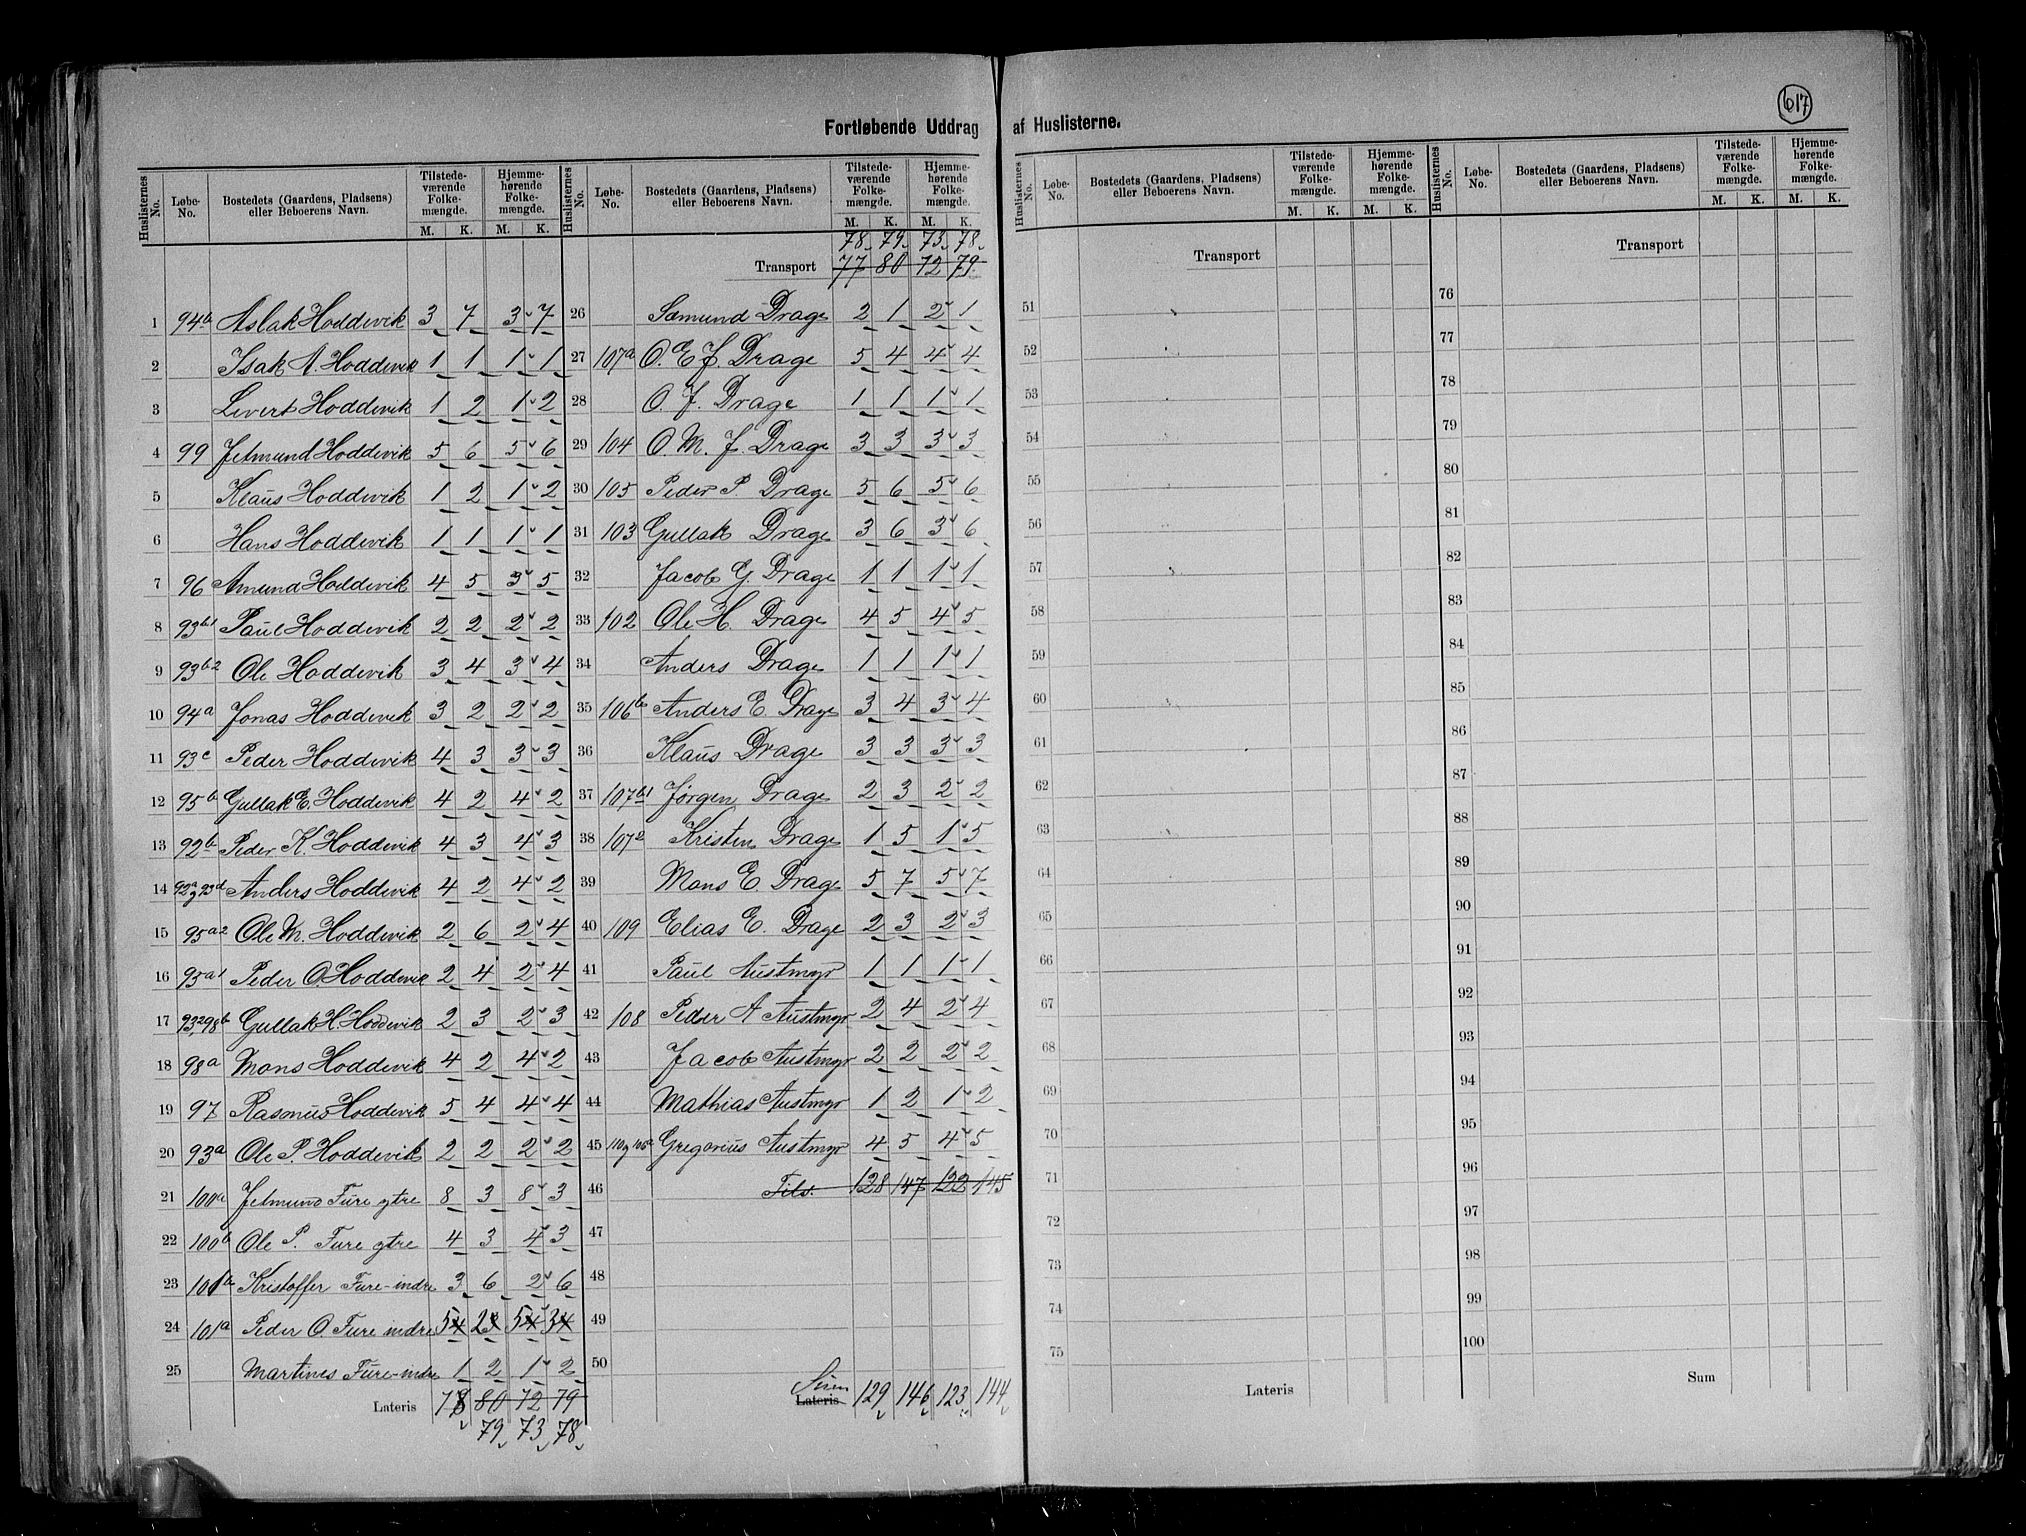 617
Fortløbende Uddrag af Huslisterne.
Huslisternes No. Løbe-No. Bostedets (Gaardens, Pladsens) eller Beboerens Navn. Tilstede-værende Folke-mængde. Hjemme-hørende Folke-mængde. M. K. M. K.
1 94b Aslak Hoddevik 3 7 3 7
2 Isak A. Hoddevik 1 1 1 1
3 Sivert Hoddevik 1 2 1 2
4 99 Jetmund Hoddevik 5 6 5 6
5 Klaus Hoddevik 1 2 1 2
6 Hans Hoddevik 1 1 1 1
7 96 Amund Hoddevik 4 5 3 5
8 93b1 Paul Hoddevik 2 2 2 2
9 93b2 Ole Hoddevik 3 4 3 4
10 94a Jonas Hoddevik 3 2 2 2
11 93c Peder Hoddevik 4 3 3 3
12 95b Gullak E. Hoddevik 4 2 4 2
13 92b Peder K. Hoddevik 4 3 4 3
14 92a g 93d Anders Hoddevik 4 2 4 2
15 95a2 Ole M. Hoddevik 2 6 2 4
16 95a1 Peder O. Hoddevik 2 4 2 4
17 93298b Gullak H. Hoddevik 2 3 2 3
18 98a Mons Hoddevik 4 2 4 2
19 97 Rasmus Hoddevik 5 4 4 4
20 93a Ole P. Hoddevik 2 2 2 2
21 100a Jetmund Fure ytre 8 3 8 3
22 100b Ole P. Fure ytre 4 3 4 3
23 101b Kristoffer Fure-indre 3 6 2 6
24 101a Peder O. Fure indre 54 23 54 34
25 Martines Fure-indre 1 2 1 2
Lateris 78 80 72 79
79 73 78
Huslisternes No. Løbe-No. Bostedets (Gaardens, Pladsens) eller Beboerens Navn. Tilstede-værende Folke-mængde. Hjemme-hørende Folke-mængde. M. K. M. K.
78 79 73 78
Transport 77 80 72 79
26 Sæmund Drage 2 1 2 1
27 107a O. E. J. Drage 5 4 4 4
28 O. J. Drage 1 1 1 1
29 104 O. M. J. Drage 3 3 3 3
30 105 Peder P Drage 5 6 5 6
31 103 Gullak Drage 3 6 3 6
32 Jacob G. Drage 1 1 1 1
33 102 Ole H. Drage 4 5 4 5
34 Anders Drage 1 1 1 1
35 106b Anders E. Drage 3 4 3 4
36 Klaus Drage 3 3 3 3
37 107b1 Jørgen Drage 2 3 2 2
38 1072 Kristen Drage 1 5 1 5
39 Mons E. Drage 5 7 5 7
40 109 Elias E. Drage 2 3 2 3
41 Paul Austmyr 1 1 1 1
42 108 Peder A Austmyr 2 4 2 4
43 Jacob Austmyr 2 2 2 2
44 Mathias Austmyr 1 2 1 2
45 110 g 106a Gregorius Austmyr 4 5 4 5
46 Tils. 128 147 122 145
47
48
49
50
Sum
Lateris 129 146 123 144
Huslisternes No. Løbe-No. Bostedets (Gaardens, Pladsens) eller Beboerens Navn. Tilstede-værende Folke-mængde. Hjemme-hørende Folke-mængde. M. K. M. K.
Transport
51
52
53
54
55
56
57
58
59
60
61
62
63
64
65
66
67
68
69
70
71
72
73
74
75
Lateris
Huslisternes No. Løbe-No. Bostedets (Gaardens, Pladsens) eller Beboerens Navn. Tilstede-værende Folke-mængde. Hjemme-hørende Folke-mængde. M. K. M. K.
Transport
76
77
78
79
80
81
82
83
84
85
86
87
88
89
90
91
92
93
94
95
96
97
98
99
100
Sum